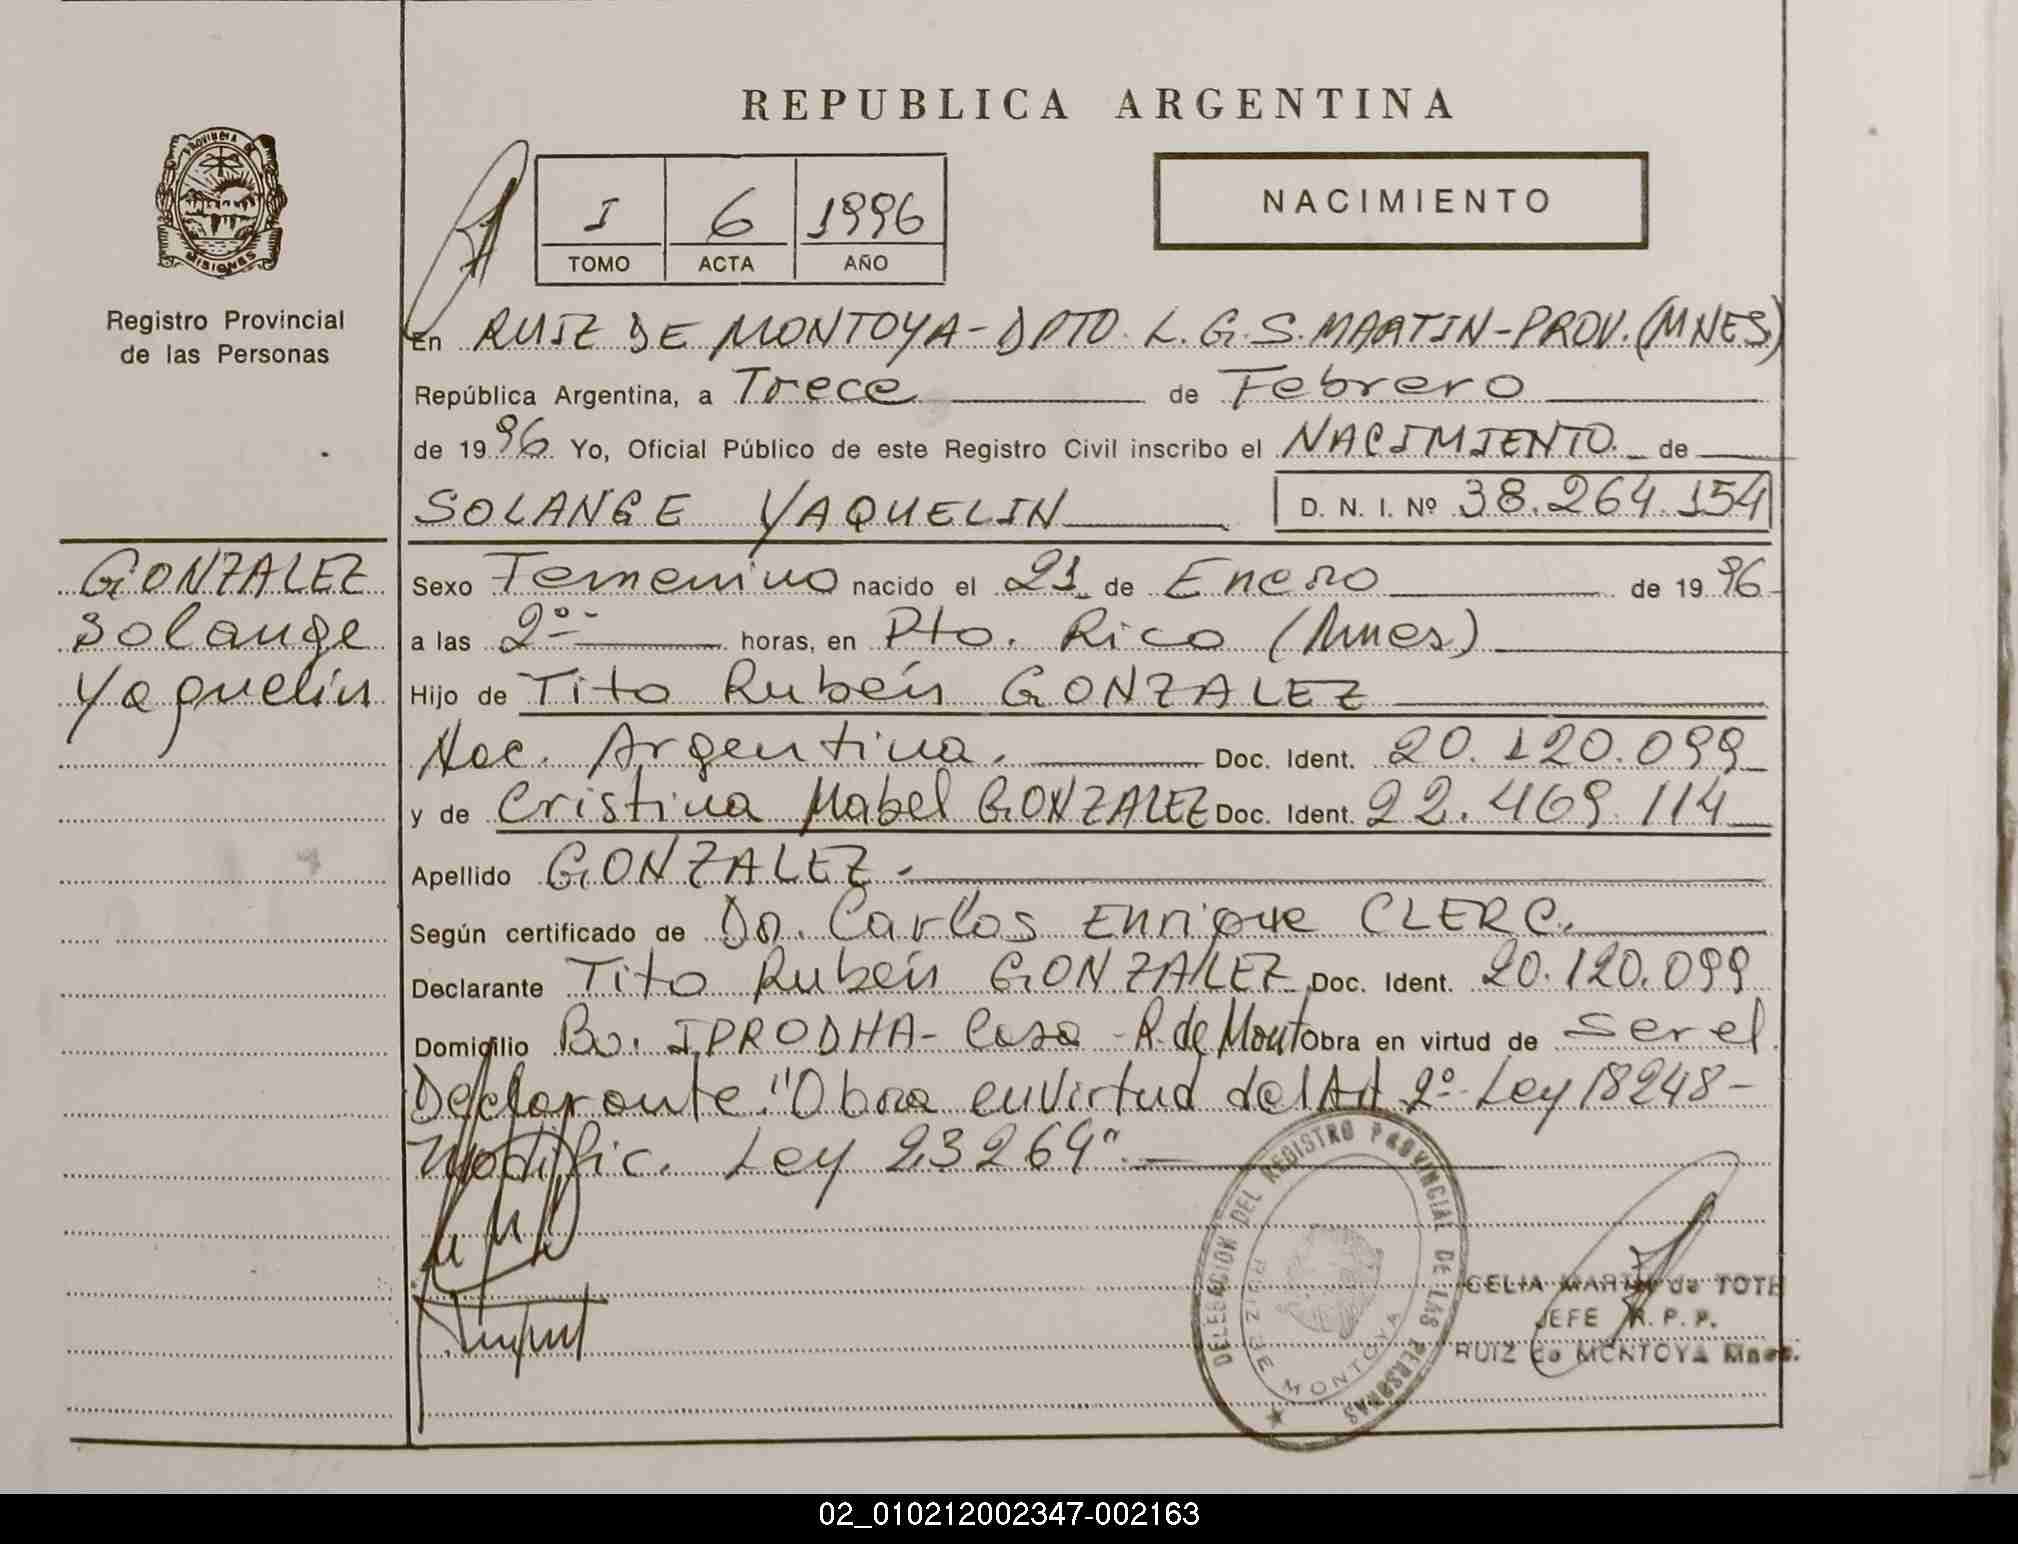 REPUBLICA ARGENTINA
PROVINCIA DE
MISIONES
I 6 1996
TOMO ACTA AÑO
NACIMIENTO
Registro Provincial
de las Personas
En RUIZ DE MONTOYA - DPTO. L.G.S. MARTIN - PROV. (MNES)
República Argentina, a Trece de Febrero
de 1996 Yo, Oficial Público de este Registro Civil inscribo el NACIMIENTO de
SOLANGE YAQUELIN D. N. I. Nº 38.264.154
GONZALEZ
Solange
Yaquelin
Sexo Femenino nacido el 21 de Enero de 1996
a las 2º- horas, en Pto. Rico (Mnes)
Hijo de Tito Rubén GONZALEZ
Nac. Argentina. Doc. Ident. 20.120.099
y de Cristina Mabel GONZALEZ Doc. Ident. 22.469.114
Apellido GONZALEZ.
Según certificado de Dr. Carlos Enrique CLERC.
Declarante Tito Rubén GONZALEZ Doc. Ident. 20.120.099
Domicilio Bo. IPRODHA - Casa - R. de Mont Obra en virtud de ser el
Declarante. "Obra en virtud del Art 2º- Ley 18248-
Modific. Ley 23264".-
DELEGACION DEL REGISTRO PROVINCIAL DE LAS PERSONAS
RUIZ DE MONTOYA
CELIA MARTA de TOTH
JEFE R. P. P.
RUIZ de MONTOYA Mnes.
02_010212002347-002163